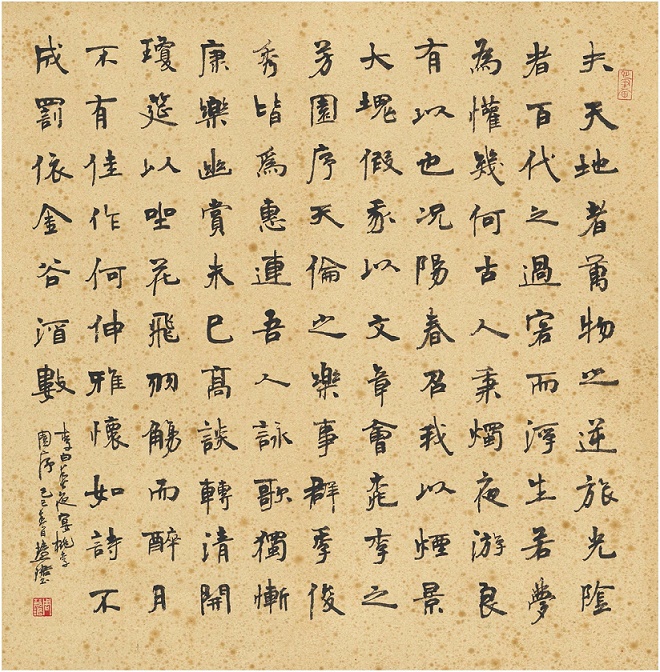 夫天地者萬物之逆旅光陰
者百代之過客而浮生若夢
為懽幾何古人秉燭夜游良
有以也况陽春召我以煙景
大塊假我以文章會桃李之
芳園序天倫之樂事群季俊
秀皆為惠連吾人詠歌獨慚
康樂幽賞未已高談轉清開
瓊筵以坐花飛羽觴而醉月
不有佳作何伸雅懷如詩不
成罰依金谷酒數
李白春夜宴桃李
園序